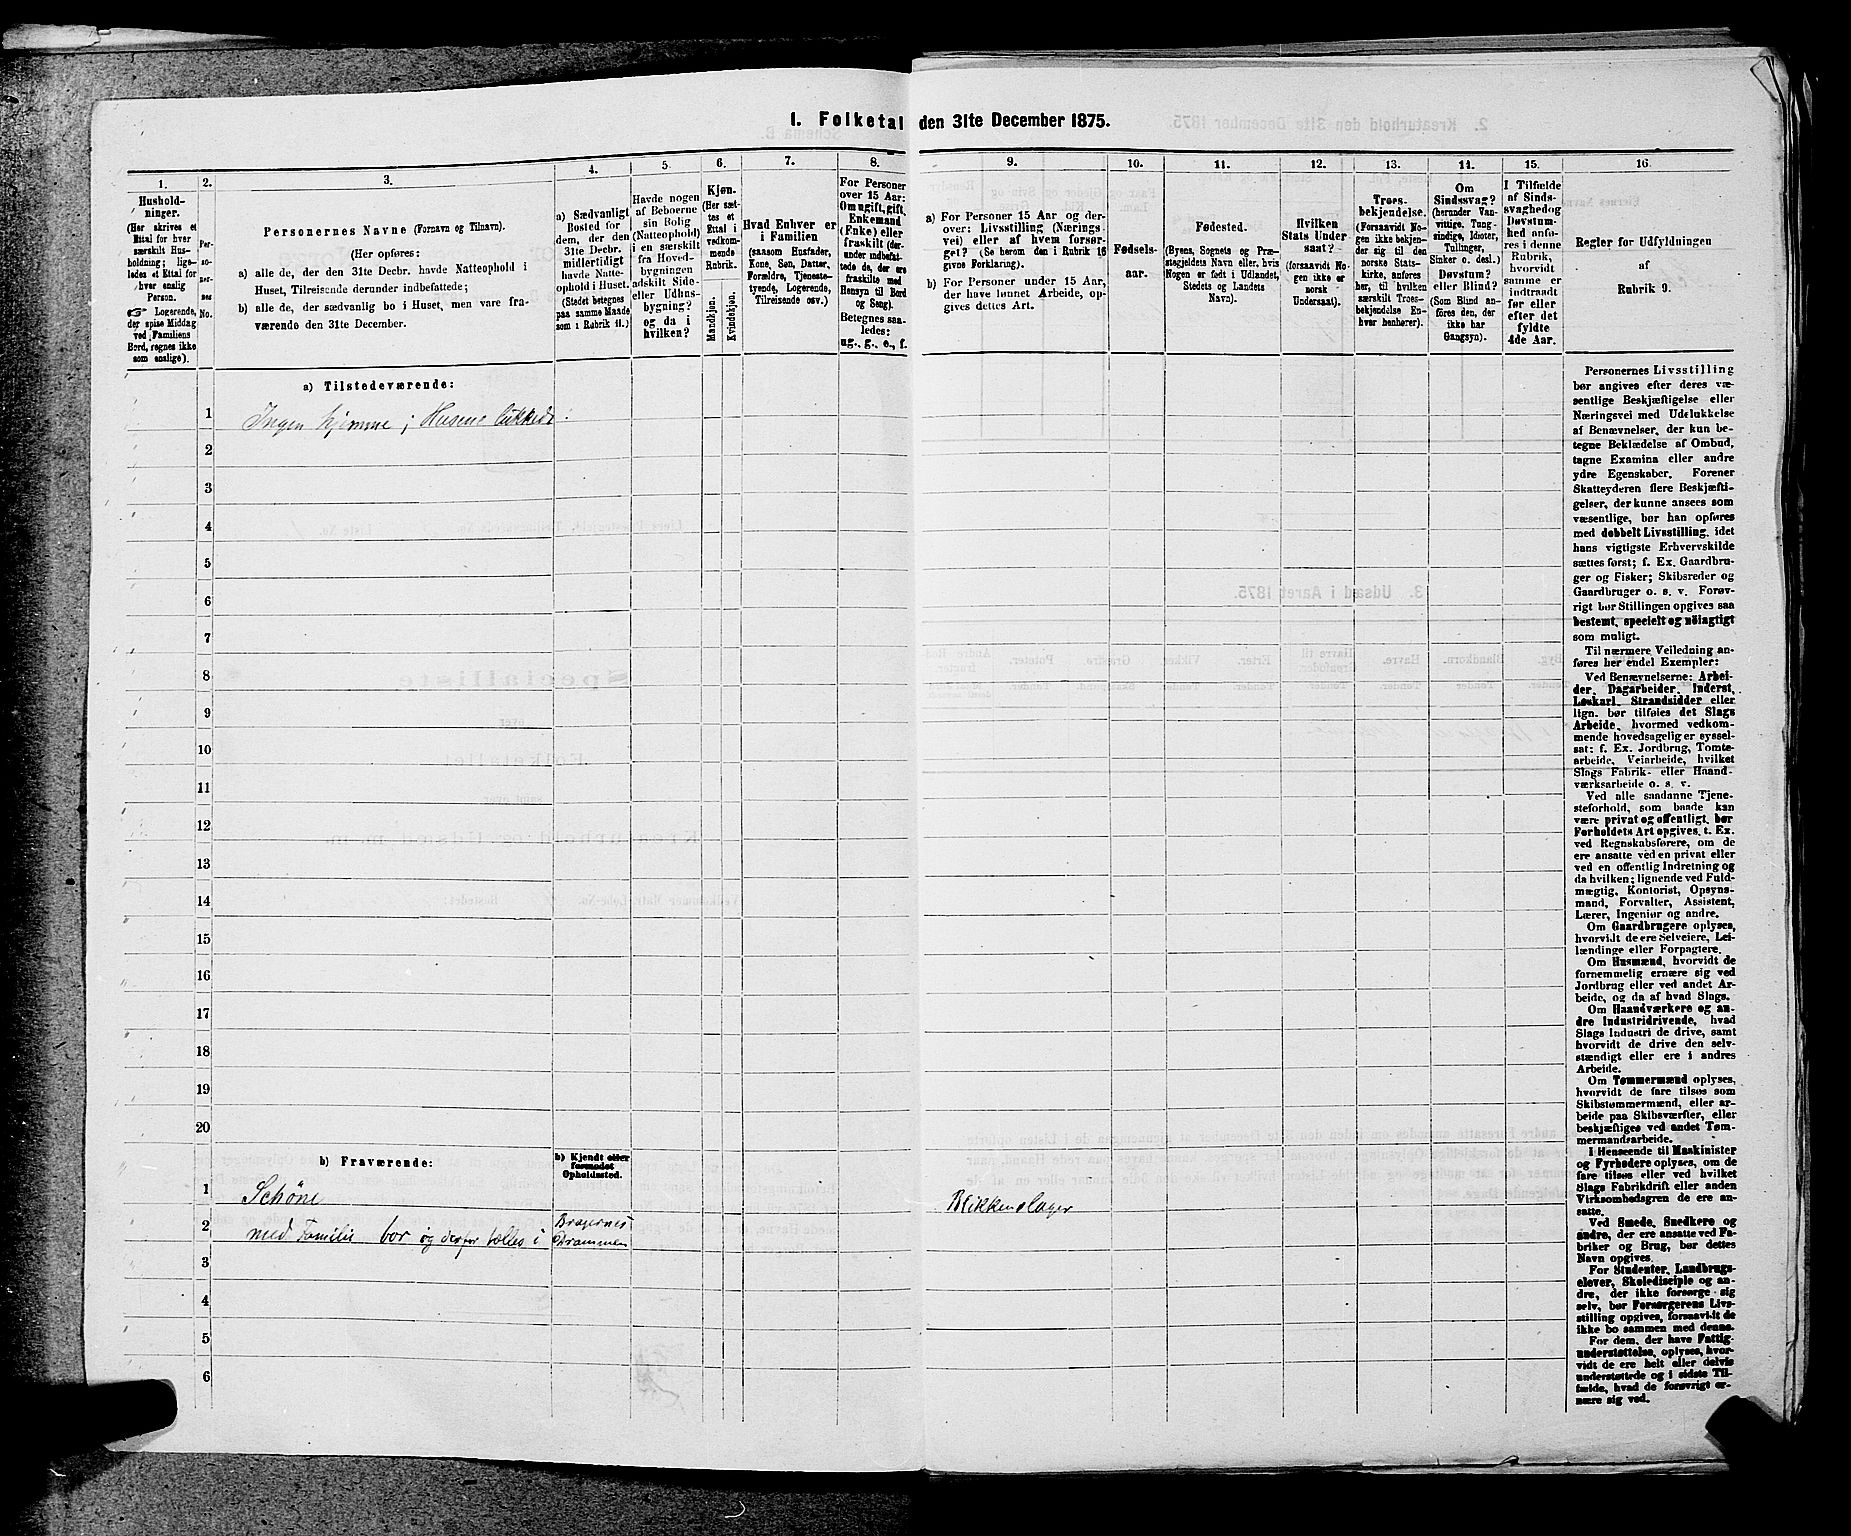 I. Folketal den 31te December 1875.
1.
Hushold-
ninger.
(Her skrives et
Ettal for hver
særskilt Hus-
holdning; lige-
ledes et Ettal for
hver enslig
Person.
Logerende,
der spise Middag
ved Familiens
Bord, regnes ikke
som enslige).
2.
Per-
so-
ner-
nes
No.
3.
Personernes Navne (Fornavn og Tilnavn).
(Her opføres:
a) alle de, der den 31te Decbr. havde Natteophold i
Huset, Tilreisende derunder indbefattede;
b) alle de, der sædvanlig bo i Huset, men vare fra-
værende den 31te December.
4.
a) Sædvanligt
Bosted for
dem, der den
31te Decbr.
midlertidigt
havde Natte-
ophold i Huset.
(Stedet betegnes
paa samme Maade
som i Rubrik 11.)
5.
Havde nogen
af Beboerne
sin Bolig
(Natteophold)
i en særskilt
fra Hoved-
bygningen
adskilt Side-
eller Udhus-
bygning?
og da i
hvilken?
6.
Kjøn.
(Her sæt-
tes et
Ettal i
vedkom-
mende
Rubrik.
Mandkjøn.
Kvindekjøn.
7.
Hvad Enhver er
i Familien
(saasom Husfader,
Kone, Søn, Datter,
Forældre, Tjeneste-
tyende, Logerende,
Tilreisende osv.)
8.
For Personer
over 15 Aar:
Om ugift, gift,
Enkemand
(Enke) eller
fraskilt (der-
under indbefat-
tede de, der ere
fraskilte med
Hensyn til Bord
og Seng).
Betegnes saa-
ledes:
ug., g., e., f.
9.
a) For Personer 15 Aar og der-
over: Livsstilling (Nærings-
vei) eller af hvem forsør-
get? (Se herom den i Rubrik 16
givne Forklaring).
b) For Personer under 15 Aar,
der have lønnet Arbeide, op-
gives dettes Art.
10.
Fødsels-
aar.
11.
Fødested.
(Byens, Sognets og Præ-
stegjeldets Navn eller, hvis
Nogen er født i Udlandet,
Stedets og Landets
Navn).
12.
Hvilken
Stats Under
saat?
(forsaavidt No-
gen ikke er
norsk
Undersaat).
13.
Troes-
bekjendelse.
(Forsaavidt No-
gen ikke bekjen-
der sig til den
norske Stats-
kirke, anføres
her, til hvilken
særskilt Troes-
bekjendelse En-
hver henhører).
14.
Om
Sindssvag?
(herunder Van-
vittige, Tung-
sindige, Idioter,
Tullinger,
Sinker o. desl.)
Døvstum?
eller Blind?
(Som Blind an-
føres den, der
ikke har
Gangsyn).
15.
I Tilfælde
af Sinds-
svaghed og
Døvstum-
hed anfø-
res i denne
Rubrik,
hvorvidt
samme er
indtraadt
før eller
efter det
fyldte
4de Aar.
16.
Regler for Udfyldningen
af
Rubrik 9.
a) Tilstedeværende:
1 Ingen hjemme; Husene lukkede
2
3
4
5
6
7
8
9
10
11
12
13
14
15
16
17
18
19
20
b) Fraværende:
b) Kjendt eller
formodet
Opholdssted.
1 Schöne Blikkenslager
2 med Familie bor og derfor tælles i Bragernes
Drammen
3
4
5
6
Personernes Livsstilling
bør angives efter deres væ-
sentlige Beskjæftigelse eller
Næringsvei med Udelukkelse
af Benævnelser, der kun be-
tegne Beklædelse af Ombud,
tagne Examina eller andre
ydre Egenskaber. Forener
Skatteyderen flere Beskjæfti-
gelser, der kunne ansees som
væsentlige, bør han opføres
med dobbelt Livsstilling, idet
hans vigtigste Erhvervskilde
sættes først; f. Ex. Gaardbru-
ger og Fisker; Skibsreder og
Gaardbruger o. s. v. Forøv-
rigt bør Stillingen opgives saa
bestemt, specielt og nöiagtigt
som muligt.
Til nærmere Veiledning an-
føres her endel Exempler:
Ved Benævnelserne: Arbei-
der, Dagarbeider, Inderst,
Løskarl, Strandsidder eller
lign. bør tilføies det Slags
Arbeide, hvormed vedkom-
mende hovedsagelig er syssel-
sat; f. Ex. Jordbrug, Tomte-
arbeide, Veiarbeide, hvilket
Slags Fabrik- eller Haand-
værksarbeide o. s. v.
Ved alle saadanne Tjene-
steforhold, som baade kan
være privat og offentligt, bør
Forholdets Art opgives, t. Ex.
ved Regnskabsførere, om de
ere ansatte ved en privat eller
ved en offentlig Indretning og
da hvilken; lignende ved Fuld-
mægtig, Kontorist, Opsyns-
mand, Forvalter, Assistent,
Lærer, Ingeniør og andre.
Om Gaardbrugere oplyses,
hvorvidt de ere Selveiere, Lei-
lændinge eller Forpagtere.
Om Husmænd, hvorvidt de
fornemmelig ernære sig ved
Jordbrug eller ved andet Ar-
beide, og da af hvad Slags.
Om Haandværkere og an-
dre Industridrivende, hvad
Slags Industri de drive, samt
hvorvidt de drive den selv-
stændigt eller ere i andres
Arbeide.
Om Tømmermænd oplyses,
hvorvidt de fare tilsøs som
Skibstømmermænd, eller ar-
beide paa Skibsværfter, eller
beskjæftiges ved andet Tøm-
mermandsarbeide.
I Henseende til Maskinister
og Fyrbødere oplyses, om de
fare tilsøs eller ved hvilket
Slags Fabrikdrift eller anden
Virksomhedsgren de ere an-
satte.
Ved Smede, Snedkere og
andre, der ere ansatte ved Fa-
briker og Brug, bør dettes
Navn opgives.
For Studenter, Landbrugs-
elever, Skoledisciple og an-
dre, der ikke forsørge sig
selv, bør Forsørgerens Livs-
stilling opgives, forsaavidt de
ikke bo sammen med denne.
For dem, der have Fattig-
understøttelse, oplyses, hvor-
vidt de ere helt eller delvis
understøttede og i sidste Til-
fælde, hvad de forøvrigt er-
nære sig ved.